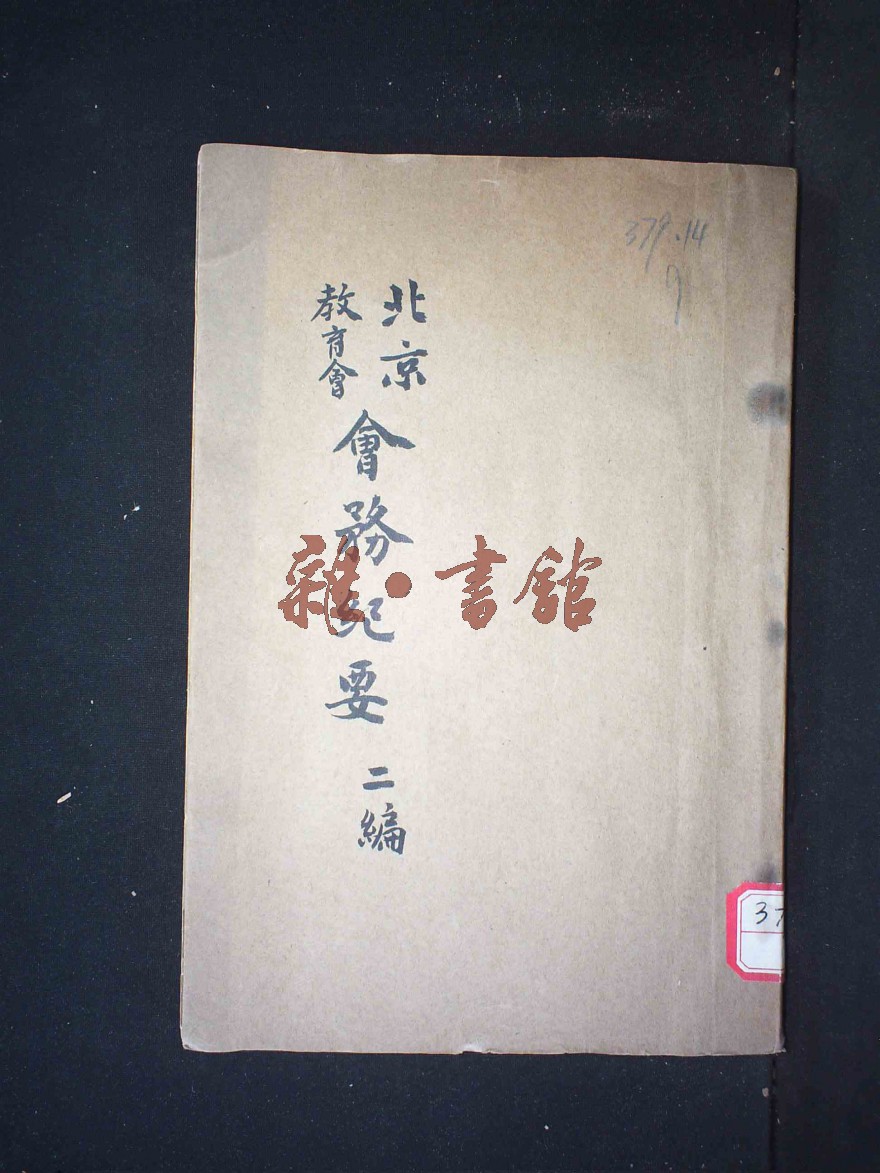 379.14
北京
教育會
會務紀要 二編
雜·書館
37